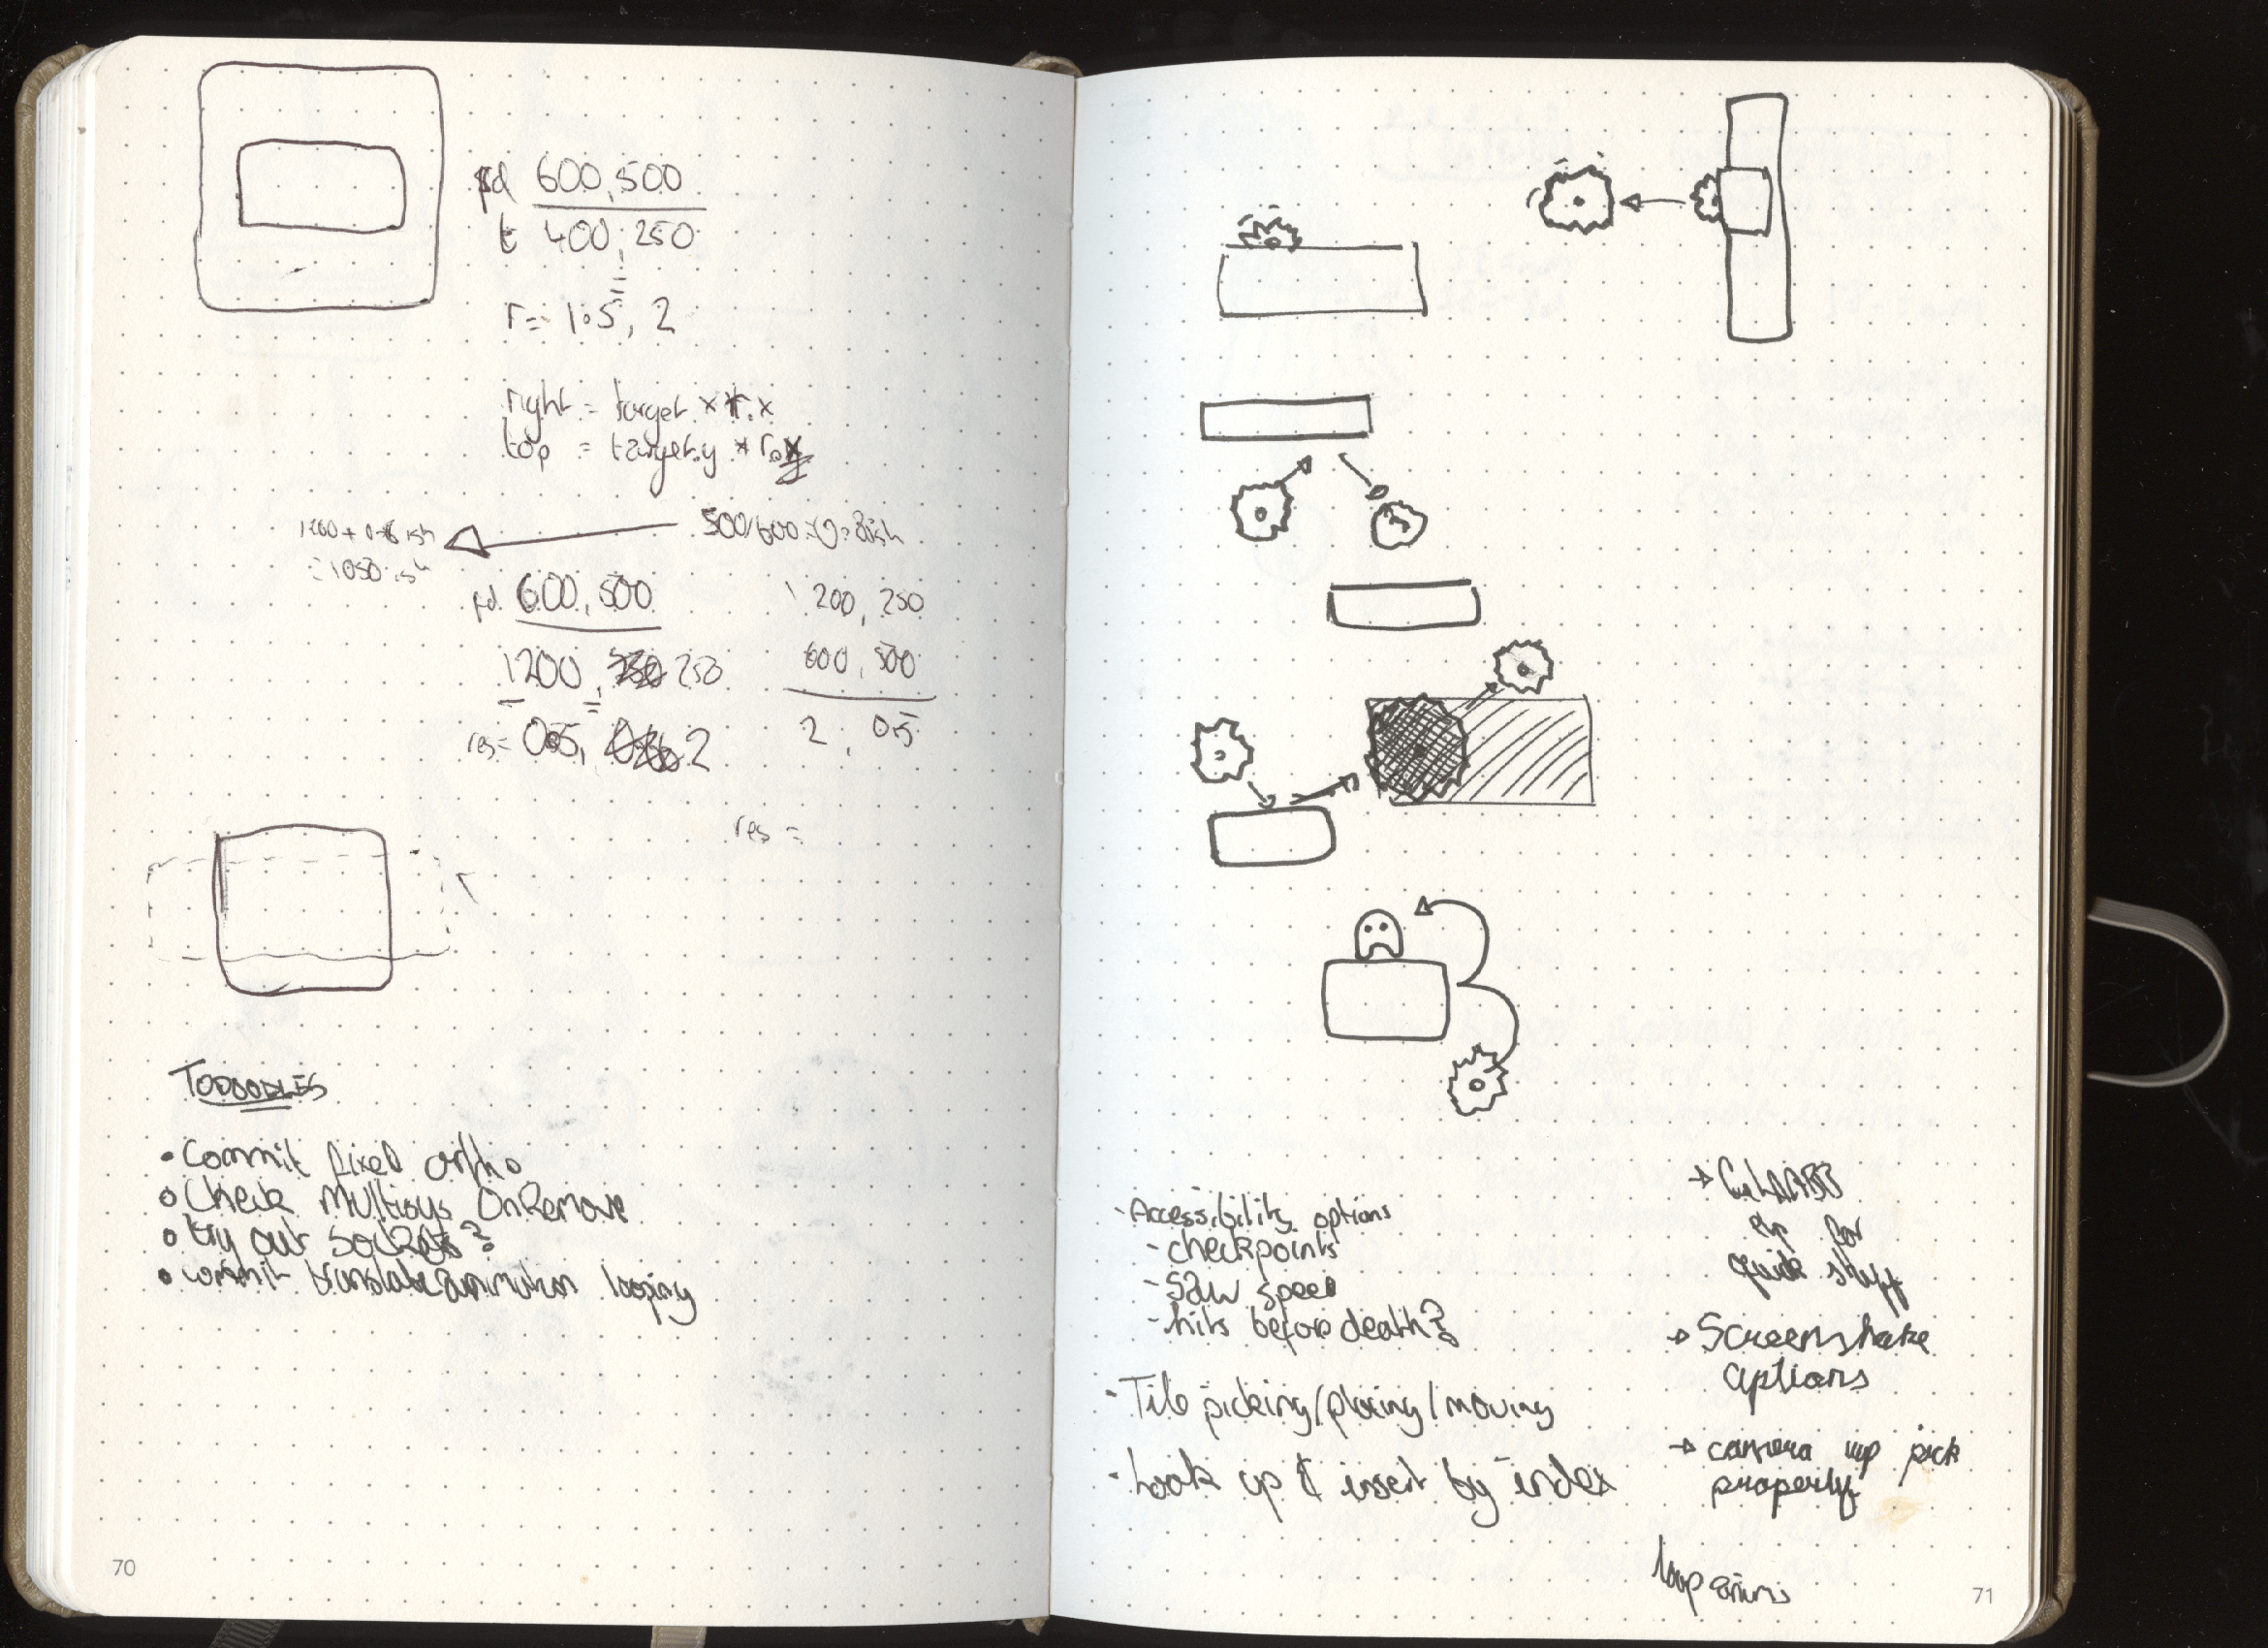 600, 500
t 400, 250
=
r = 1.5, 2
right = target x * r.x
top = target.y * r.
500/600 = 0.8ish
= 1050 ish
pd 600, 500
1200, 250
res = 0.5, 2
1200, 250
600, 500
2, 0.5
res =
TODOODLES
• Commit pixel ortho
• Check Multisys OnRemove
• try out sockets?
• commit translate animation looping
70
- Accessibility options
- checkpoints
- Saw speed
- hits before death?
- Tile picking/placing/moving
- Look up & insert by index
→
for
quick stuff
→ Screenshake
options
→ camera pick
properly
loop anims
71